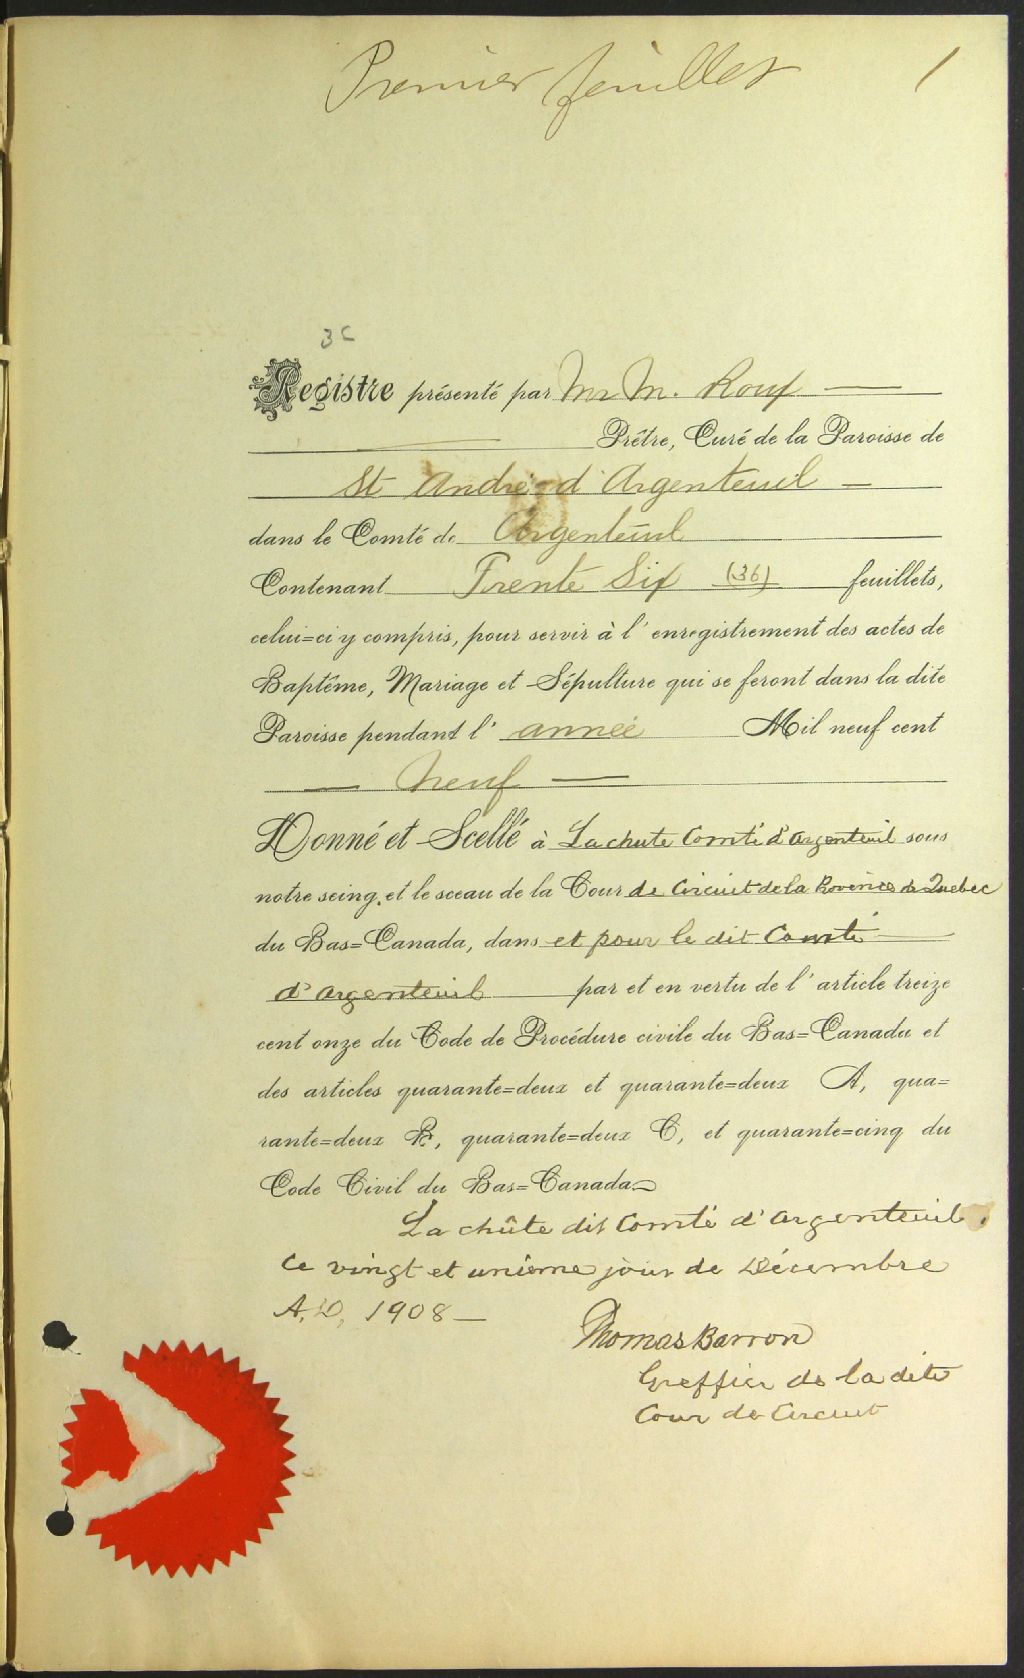 Premier feuillet 1
36
Registre présenté par Mr M. Roux
Prêtre, Curé de la Paroisse de
St André d'Argenteuil
dans le Comté de Argenteuil
Contenant Trente Six (36) feuillets,
celui=ci y compris, pour servir à l'enregistrement des actes de
Baptême, Mariage et Sépulture qui se feront dans la dite
Paroisse pendant l'année Mil neuf cent
Neuf
Donné et Scellé à Lachute Comté d'Argenteuil sous
notre seing, et le sceau de la Cour de Circuit de la Province de Quebec
du Bas=Canada, dans et pour le dit Comté
d'Argenteuil par et en vertu de l'article treize
cent onze du Code de Procédure civile du Bas=Canada et
des articles quarante=deux et quarante=deux A, qua=
rante=deux B, quarante=deux C, et quarante=cinq du
Code Civil du Bas=Canada
La chûte dit Comté d'Argenteuil,
ce vingt et unième jour de Décembre
A.D, 1908
Thomas Barron
Greffier de la dite
Cour de Circuit